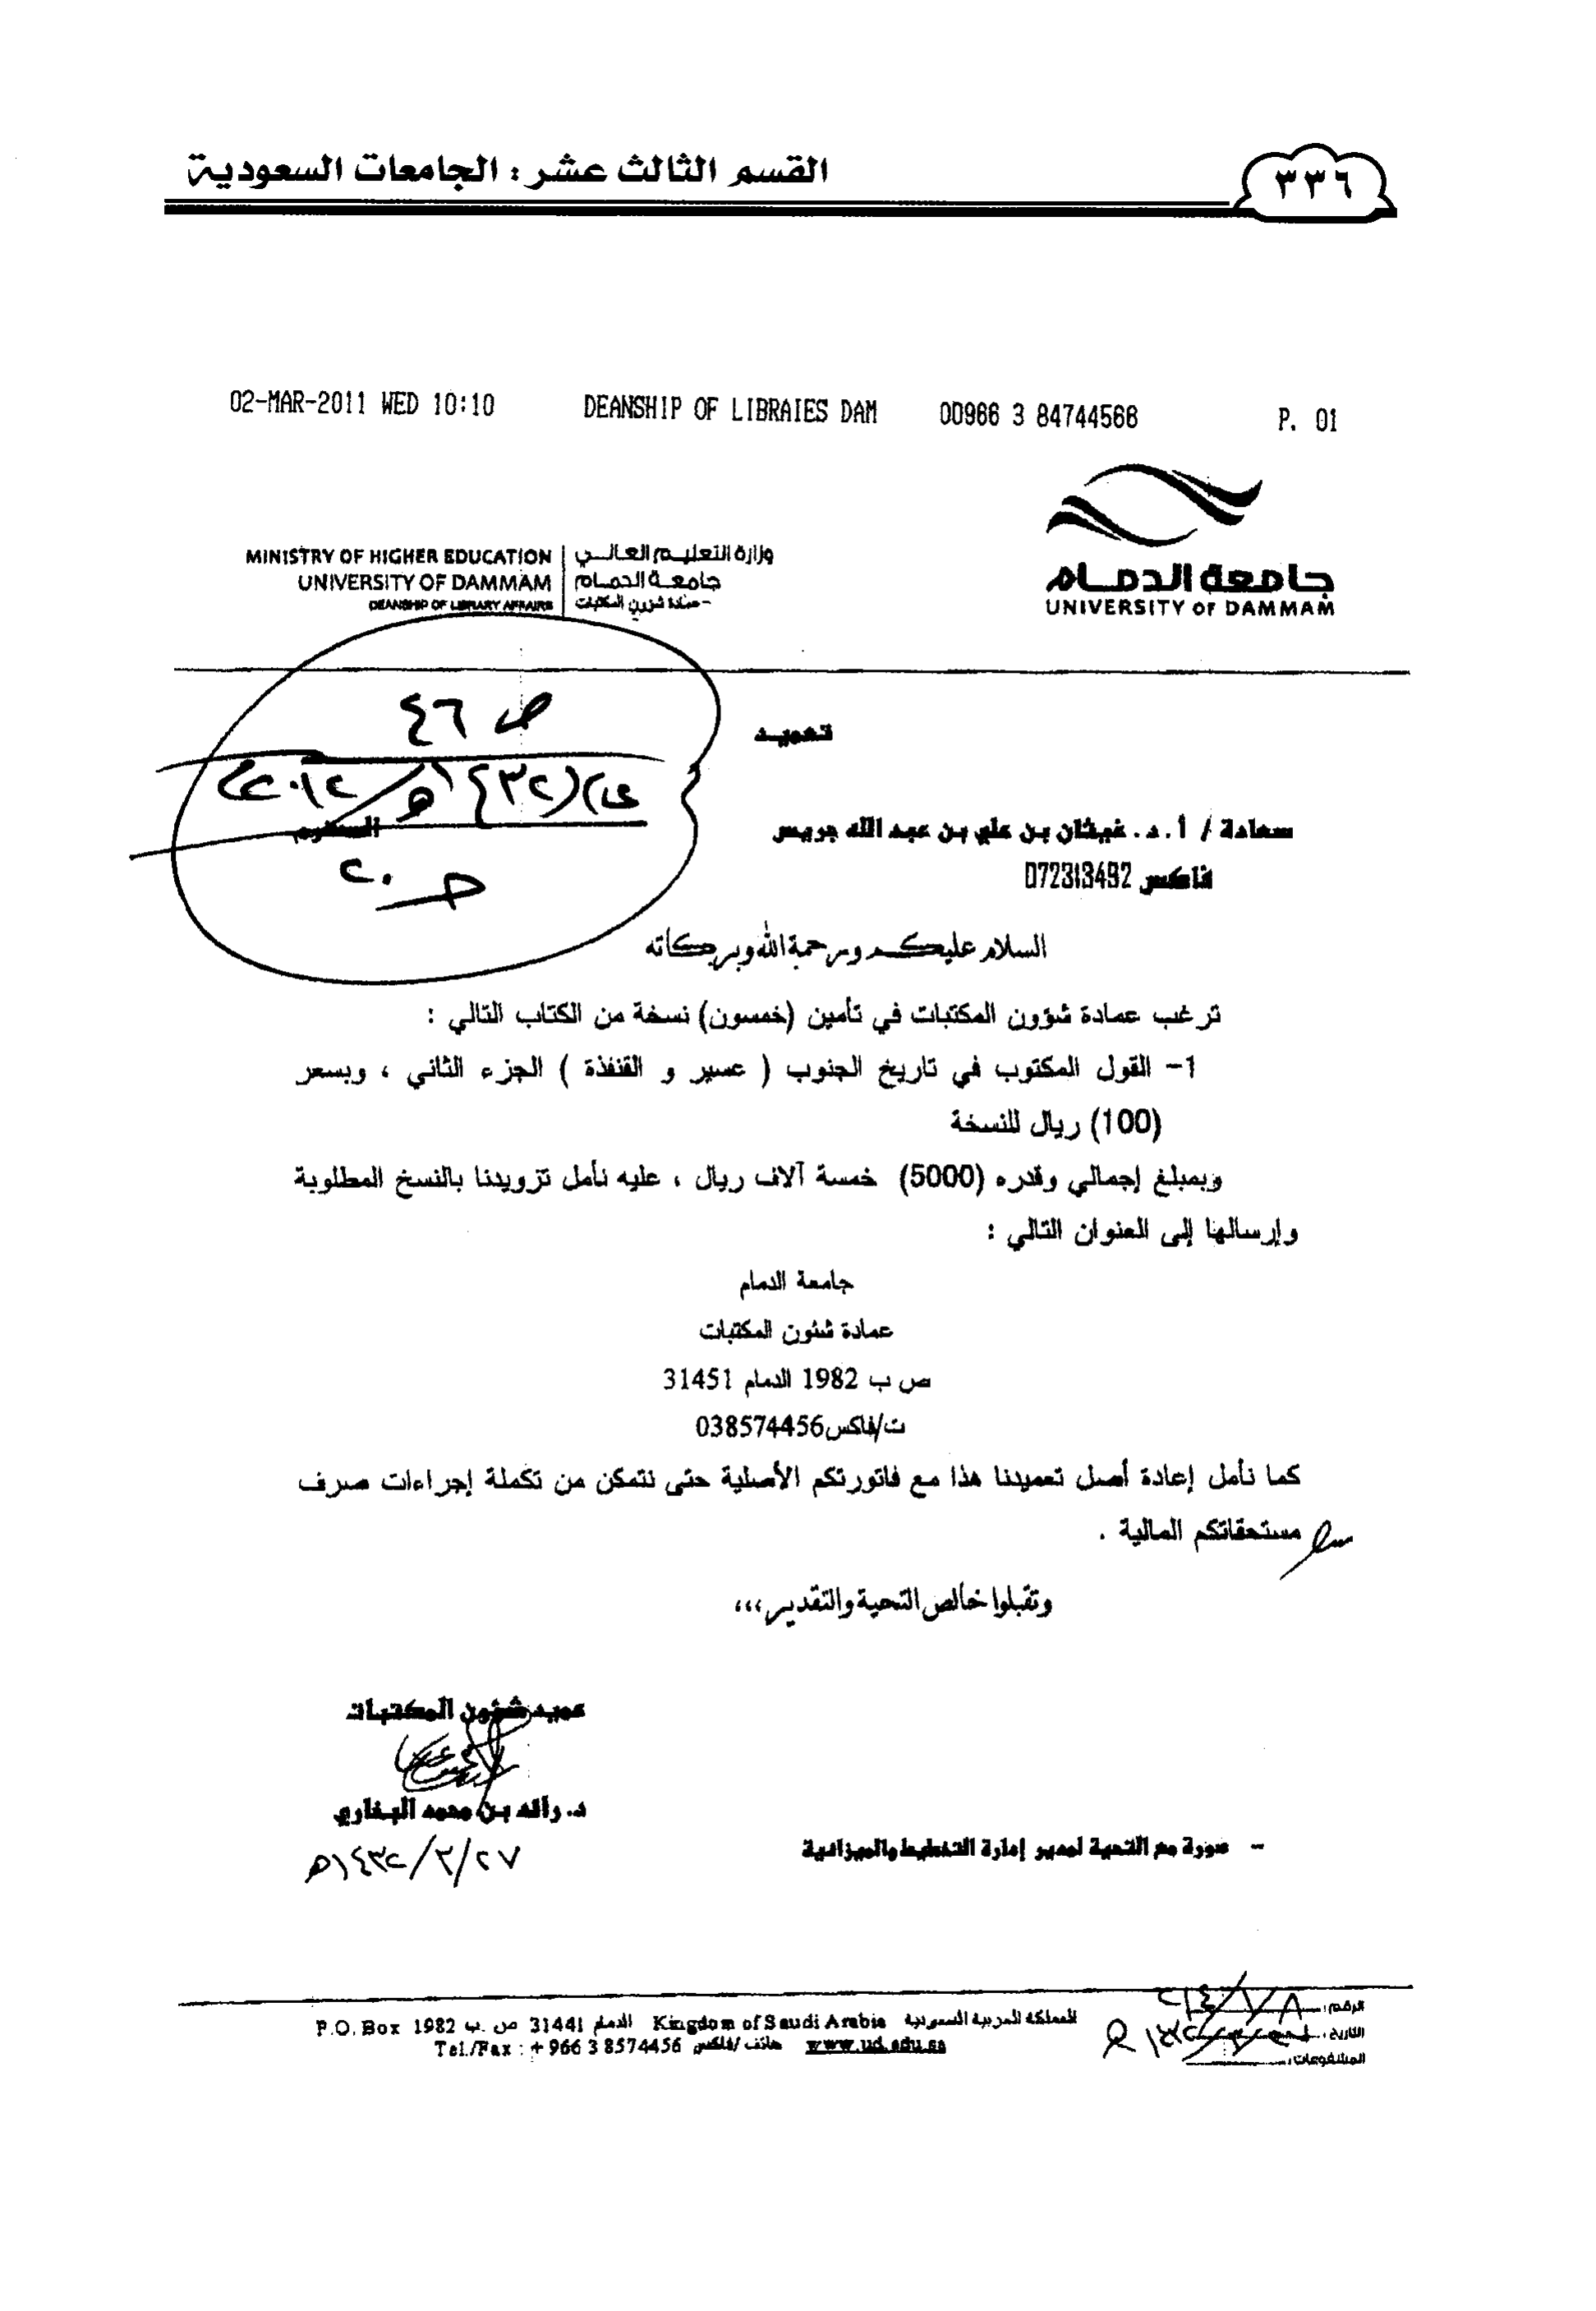 القسم الثالث عشر : الجامعات السعودية
٣٣٦
02-MAR-2011 WED 10:10 DEANSHIP OF LIBRAIES DAM 00966 3 84744568 P. 01
وزارة التعليم العالي
جامعة الدمام
عمادة شؤون المكتبات
MINISTRY OF HIGHER EDUCATION
UNIVERSITY OF DAMMAM
DEANSHIP OF LIBRARY AFFAIRS
جامعة الدمام
UNIVERSITY OF DAMMAM
ص ٤٦
تعميد
سعادة / أ.د. غيثان بن علي بن عبد الله جريس المحترم
فاكس 072313492
السلام عليكم ورحمة الله وبركاته
ترغب عمادة شؤون المكتبات في تأمين (خمسون) نسخة من الكتاب التالي :
1- القول المكتوب في تاريخ الجنوب ( عسير و القنفذة ) الجزء الثاني ، وبسعر
(100) ريال للنسخة
وبمبلغ إجمالي وقدره (5000) خمسة آلاف ريال ، عليه نأمل تزويدنا بالنسخ المطلوبة
وإرسالها إلى العنوان التالي :
جامعة الدمام
عمادة شئون المكتبات
ص ب 1982 الدمام 31451
ت/فاكس038574456
كما نأمل إعادة أصل تعميدنا هذا مع فاتورتكم الأصلية حتى نتمكن من تكملة إجراءات صرف
مستحقاتكم المالية .
وتقبلوا خالص التحية والتقدير،،،
عميد شؤون المكتبات
د. رائد بن محمد البخاري
٢٧/٣/١٤٣٢ه
- صورة مع التحية لمدير إدارة التخطيط والميزانية
الرقم :
التاريخ :
المشفوعات :
المملكة العربية السعودية Kingdom of Saudi Arabia الدمام 31441 ص .ب P.O. Box 1982
www.ud.edu.sa هاتف /فاكس Tel./Fax : + 966 3 8574456